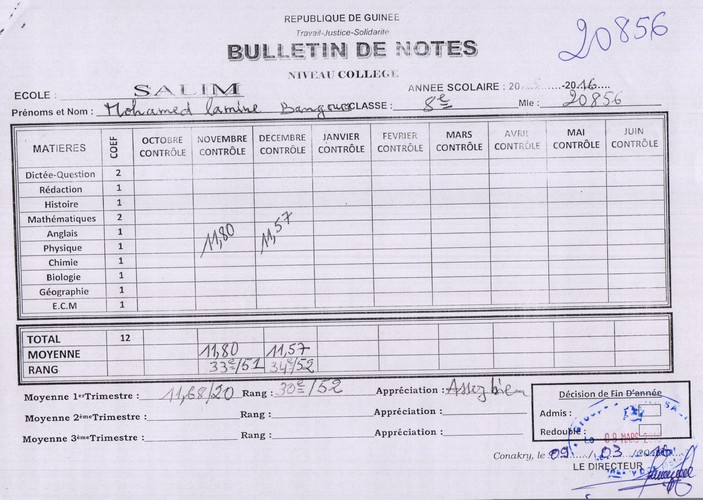 REPUBLIQUE DE GUINEE
Travail-Justice-Solidarité
20856
BULLETIN DE NOTES
NIVEAU COLLEGE
ECOLE : SALIM ANNEE SCOLAIRE : 20 -2016
Prénoms et Nom : Mohamed lamine Bangoura CLASSE : 8e Mle : 20856
MATIERES COEF OCTOBRE CONTRÔLE NOVEMBRE CONTRÔLE DECEMBRE CONTRÔLE JANVIER CONTRÔLE FEVRIER CONTRÔLE MARS CONTRÔLE AVRIL CONTRÔLE MAI CONTRÔLE JUIN CONTRÔLE
Dictée-Question 2
Rédaction 1
Histoire 1
Mathématiques 2
Anglais 1 11,80 11,57
Physique 1
Chimie 1
Biologie 1
Géographie 1
E.C.M 1
TOTAL 12
MOYENNE 11,80 11,57
RANG 33e/51 34e/52
Moyenne 1erTrimestre : 11,68/20 Rang : 30e/52 Appréciation : Assez bien
Moyenne 2èmeTrimestre : Rang : Appréciation :
Moyenne 3èmeTrimestre : Rang : Appréciation :
Décision de Fin D'année
Admis :
Redouble :
Conakry, le 09 / 03 /2016
LE DIRECTEUR